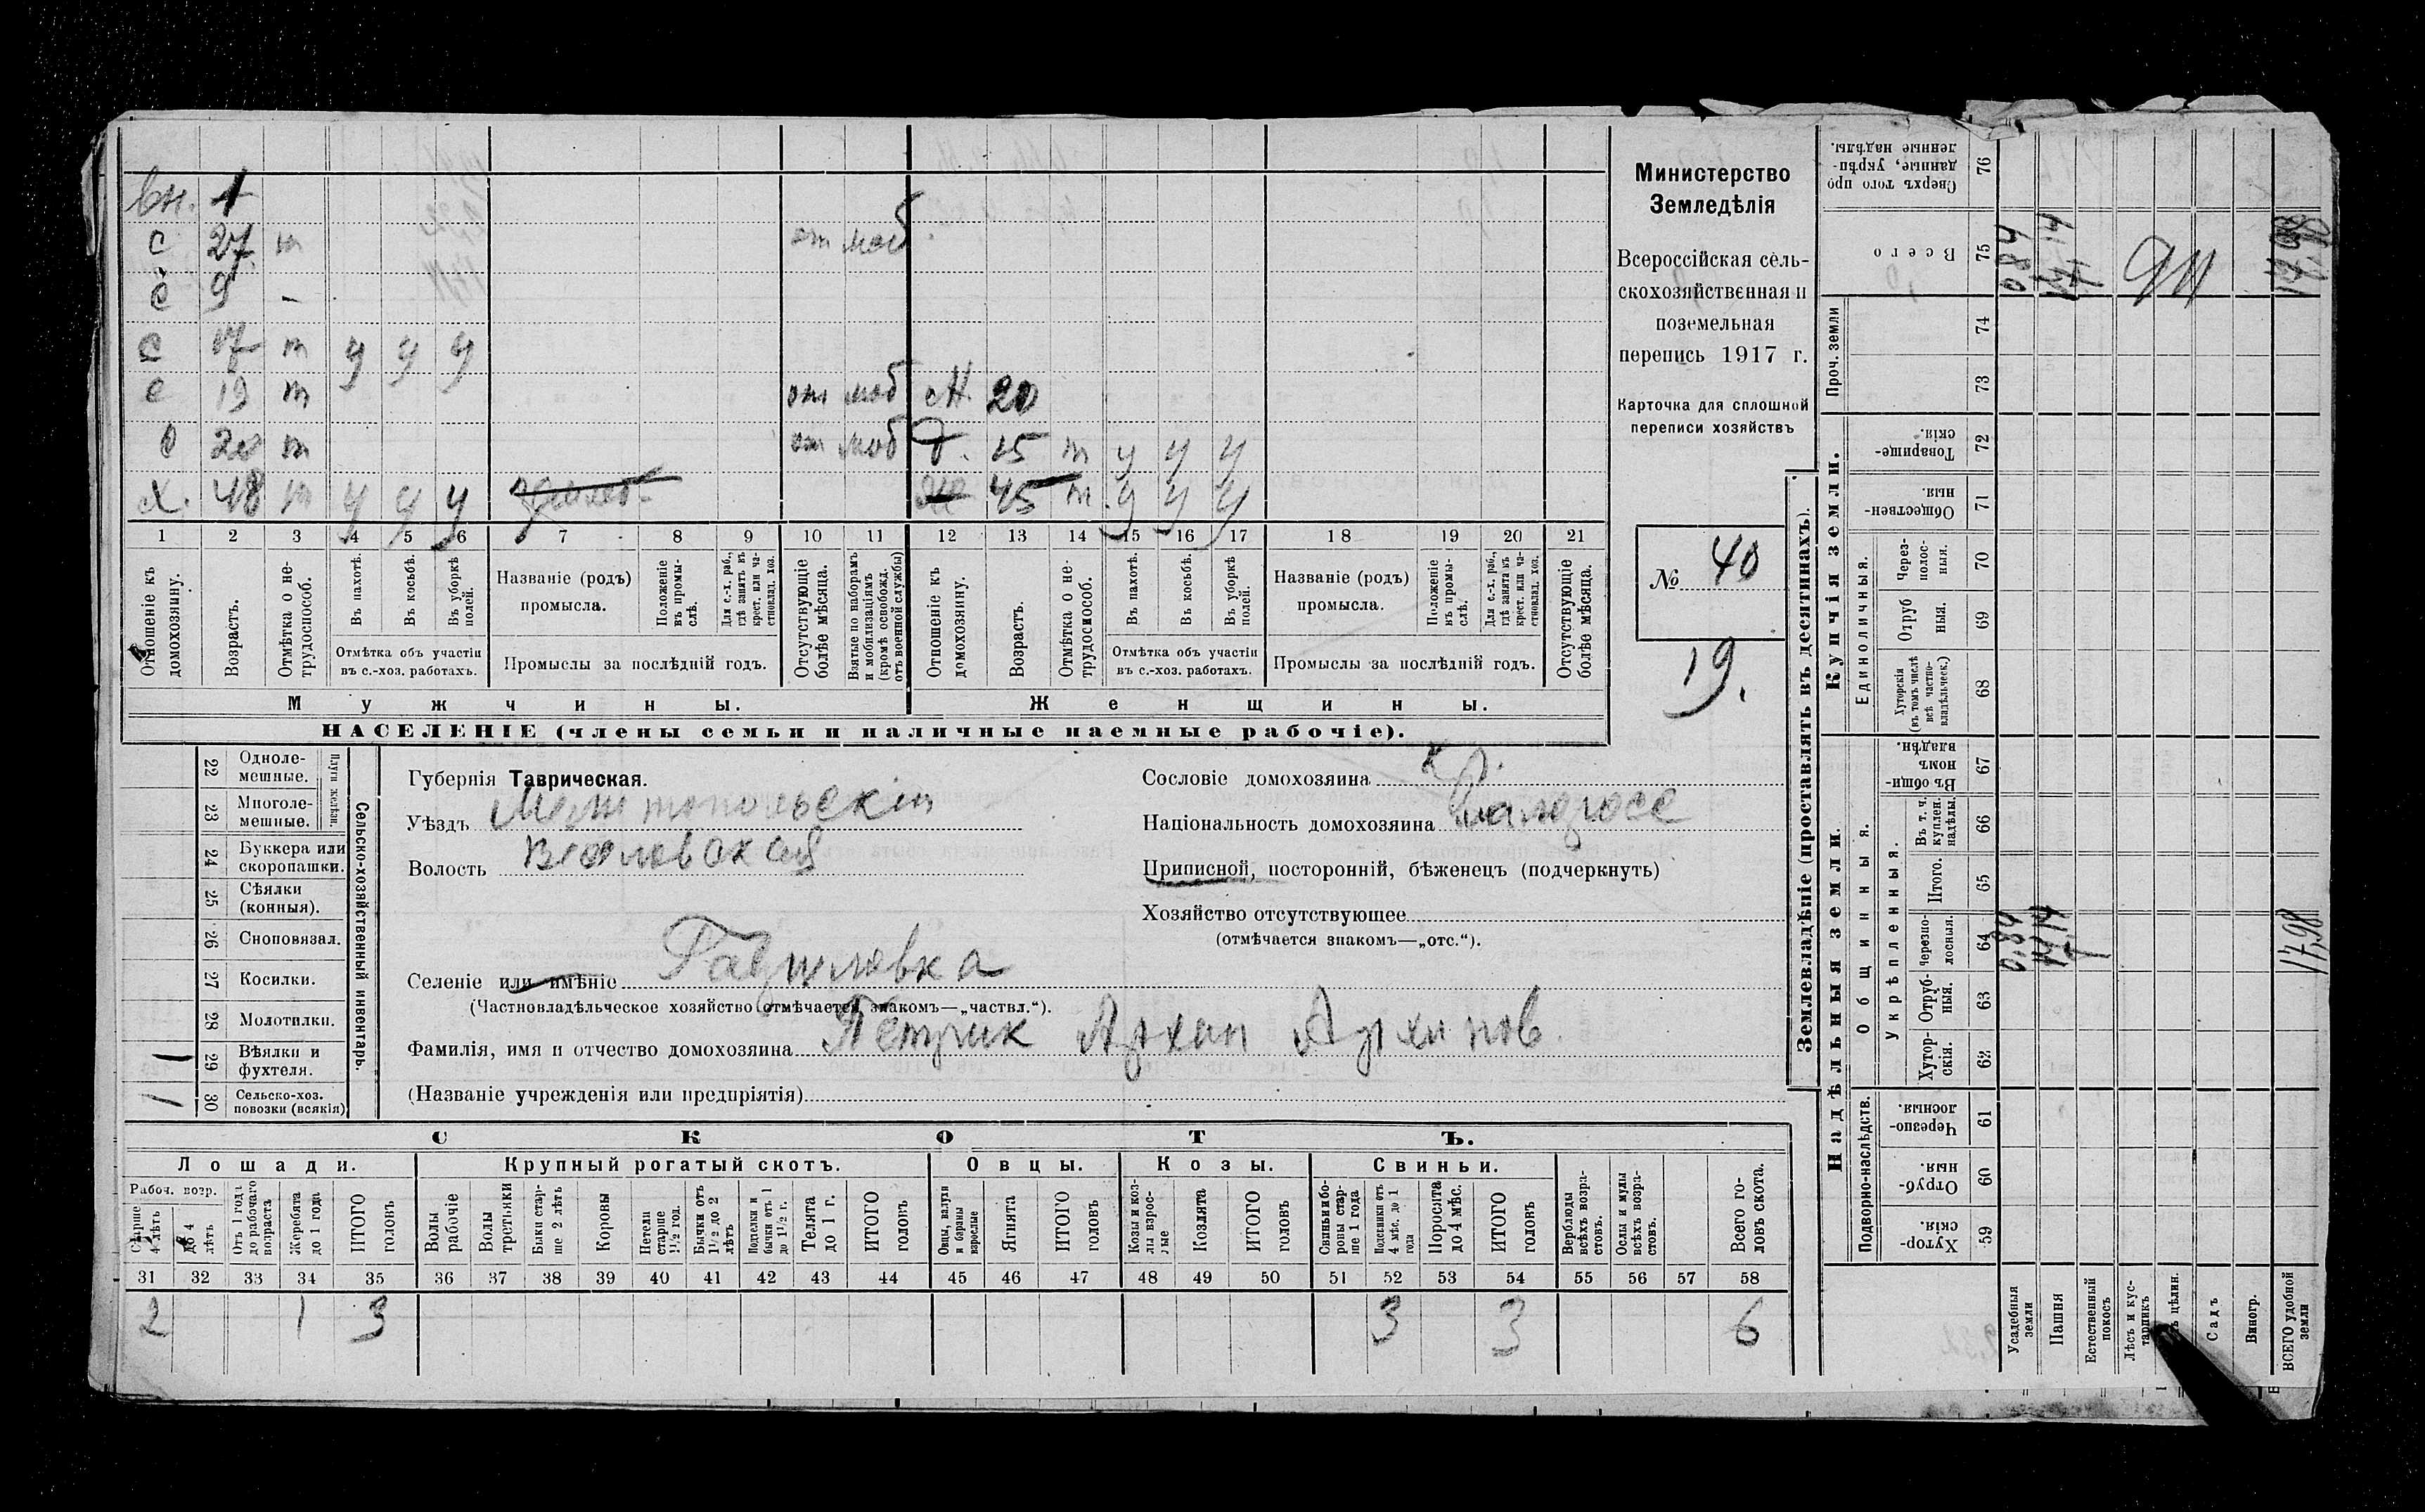 вн. 1
с 27 т от моб.
с 9 –
с 17 т у у у
с 19 т от моб Н. 20
с 20 т от моб д. 15 т у у у
х. 48 т у у у 45 т у у у
1 2 3 4 5 6 7 8 9 10 11 12 13 14 15 16 17 18 19 20 21
Отношеніе къ домохозяину.
Возрастъ.
Отмѣтка о нетрудоспособ.
Въ пахотѣ.
Въ косьбѣ.
Въ уборкѣ полей.
Отмѣтка объ участіи въ с.-хоз. работахъ.
Названіе (родъ) промысла.
Положеніе въ промыслѣ.
Для с.-х. раб., гдѣ занятъ въ крест. или частновлад. хоз.
Промыслы за послѣдній годъ.
Отсутствующіе болѣе мѣсяца.
Взятые по наборамъ и мобилизаціямъ (кромѣ освобожд. отъ военной службы)
Отношеніе къ домохозяину.
Возрастъ.
Отмѣтка о нетрудоспособ.
Въ пахотѣ.
Въ косьбѣ.
Въ уборкѣ полей.
Отмѣтка объ участіи въ с.-хоз. работахъ.
Названіе (родъ) промысла.
Положеніе въ промыслѣ.
Для с.-х. раб., гдѣ занята въ крест. или частновлад. хоз.
Промыслы за послѣдній годъ.
Отсутствующіе болѣе мѣсяца.
Мужчины. Женщины.
НАСЕЛЕНІЕ (члены семьи и наличные наемные рабочіе).
Министерство
Земледѣлія
Всероссійская сель-
скохозяйственная и
поземельная
перепись 1917 г.
Карточка для сплошной
переписи хозяйствъ
№ 40
19.
Сельско-хозяйственный инвентарь.
Плуги желѣзн.
22 Одноле-
мешные.
23 Многоле-
мешные.
24 Буккера или
скоропашки.
25 Сѣялки
(конныя).
26 Сноповязал.
27 Косилки.
28 Молотилки.
1 29 Вѣялки и
фухтеля.
1 30 Сельско-хоз.
повозки (всякія)
Губернія Таврическая.
Уѣздъ Мелитопольскій
Волость
Сословіе домохозяина кр.
Національность домохозяина малоросс
Приписной, посторонній, бѣженецъ (подчеркнуть)
Хозяйство отсутствующее
(отмѣчается знакомъ—„отс.“).
Селеніе или имѣніе Гавриловка
(Частновладѣльческое хозяйство отмѣчается знакомъ—„частвл.“).
Фамилія, имя и отчество домохозяина Петрик Архип Архипов.
(Названіе учрежденія или предпріятія)
СКОТЪ.
Лошади. Крупный рогатый скотъ. Овцы. Козы. Свиньи.
Рабоч. возр.
Старше 4 лѣтъ
до 4 лѣтъ
Отъ 1 года до рабочаго возраста
Жеребята до 1 года
ИТОГО головъ
Волы рабочіе
Волы третьяки
Быки старше 2 лѣтъ
Коровы
Нетели старше 1½ год.
Бычки отъ 1½ до 2 лѣтъ
Подтелки и бычки отъ 1 до 1½ г.
Телята до 1 г.
ИТОГО головъ
Овцы, валухи и бараны взрослые
Ягнята
ИТОГО головъ
Козы и козлы взрослые
Козлята
ИТОГО головъ
Свиньи и боровы старше 1 года
Подсвинки отъ 4 мѣс. до 1 года
Поросята до 4 мѣс.
ИТОГО головъ
Верблюды всѣхъ возрастовъ.
Ослы и мулы всѣхъ возрастовъ.
Всего головъ скота.
31 32 33 34 35 36 37 38 39 40 41 42 43 44 45 46 47 48 49 50 51 52 53 54 55 56 57 58
2 1 3 3 3 6
Землевладѣніе (проставлять въ десятинахъ).
Надѣльныя земли. Купчія земли. Проч. земли
Подворно-наслѣдств.
Общинныя.
Укрѣпленныя.
Единоличныя.
Хуторскія. 59
Отрубныя. 60
Черезполосныя. 61
Хуторскія. 62
Отрубныя. 63
Черезполосныя. 64
Итого. 65
Въ т. ч. куплен. надѣлы. 66
Въ общинномъ владѣн. 67
Хуторскія (въ томъ числѣ всѣ частновладѣльческ.) 68
Отрубныя. 69
Черезполосныя. 70
Общественныя. 71
Товарищескія. 72
73
74
Всего 75
Сверхъ того проданные, укрѣпленные надѣлы. 76
Усадебныя земли 0,84 0,84
Пашня 17,14 17,14
Естественный покосъ
Лѣсъ и кустарникъ
цѣлин.
Садъ
Виногр.
ВСЕГО удобной земли 17,98 17,98